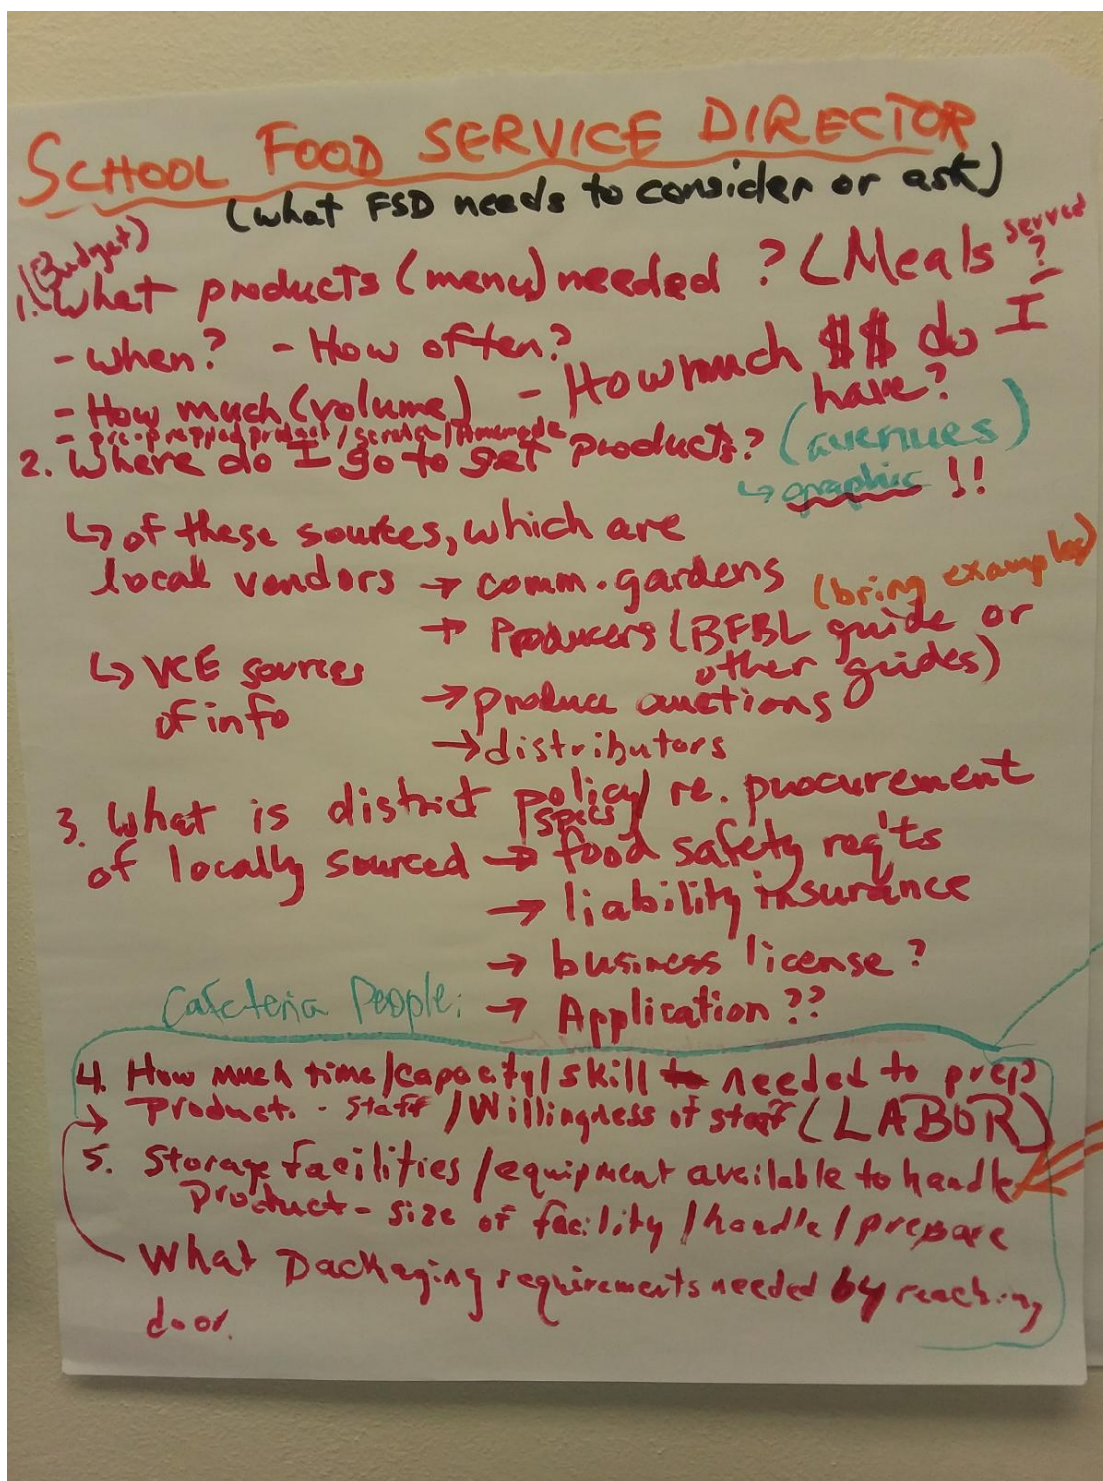 SCHOOL FOOD SERVICE DIRECTOR
(what FSD needs to consider or ask)
(Budget)
1. What products (menu) needed? (Meals served?
- when? - How often?
- How much (volume) - How much $$ do I have?
- pre-prepped product/scratch/homemade
2. Where do I go to get products? (avenues)
↳ graphic !!
↳ of these sources, which are
local vendors → comm. gardens
(bring examples)
→ Producers (BFBL guide or
other guides)
↳ VCE sources
of info
→ produce auctions
→ distributors
3. What is district policy/specs re. procurement
of locally sourced → food safety req'ts
→ liability insurance
→ business license?
→ Application??
Cafeteria People:
4. How much time/capacity/skill to needed to prep
product. - Staff/Willingness of staff (LABOR)
5. Storage facilities/equipment available to handle
product - size of facility/handle/prepare
What Packaging requirements needed by reaching
door.